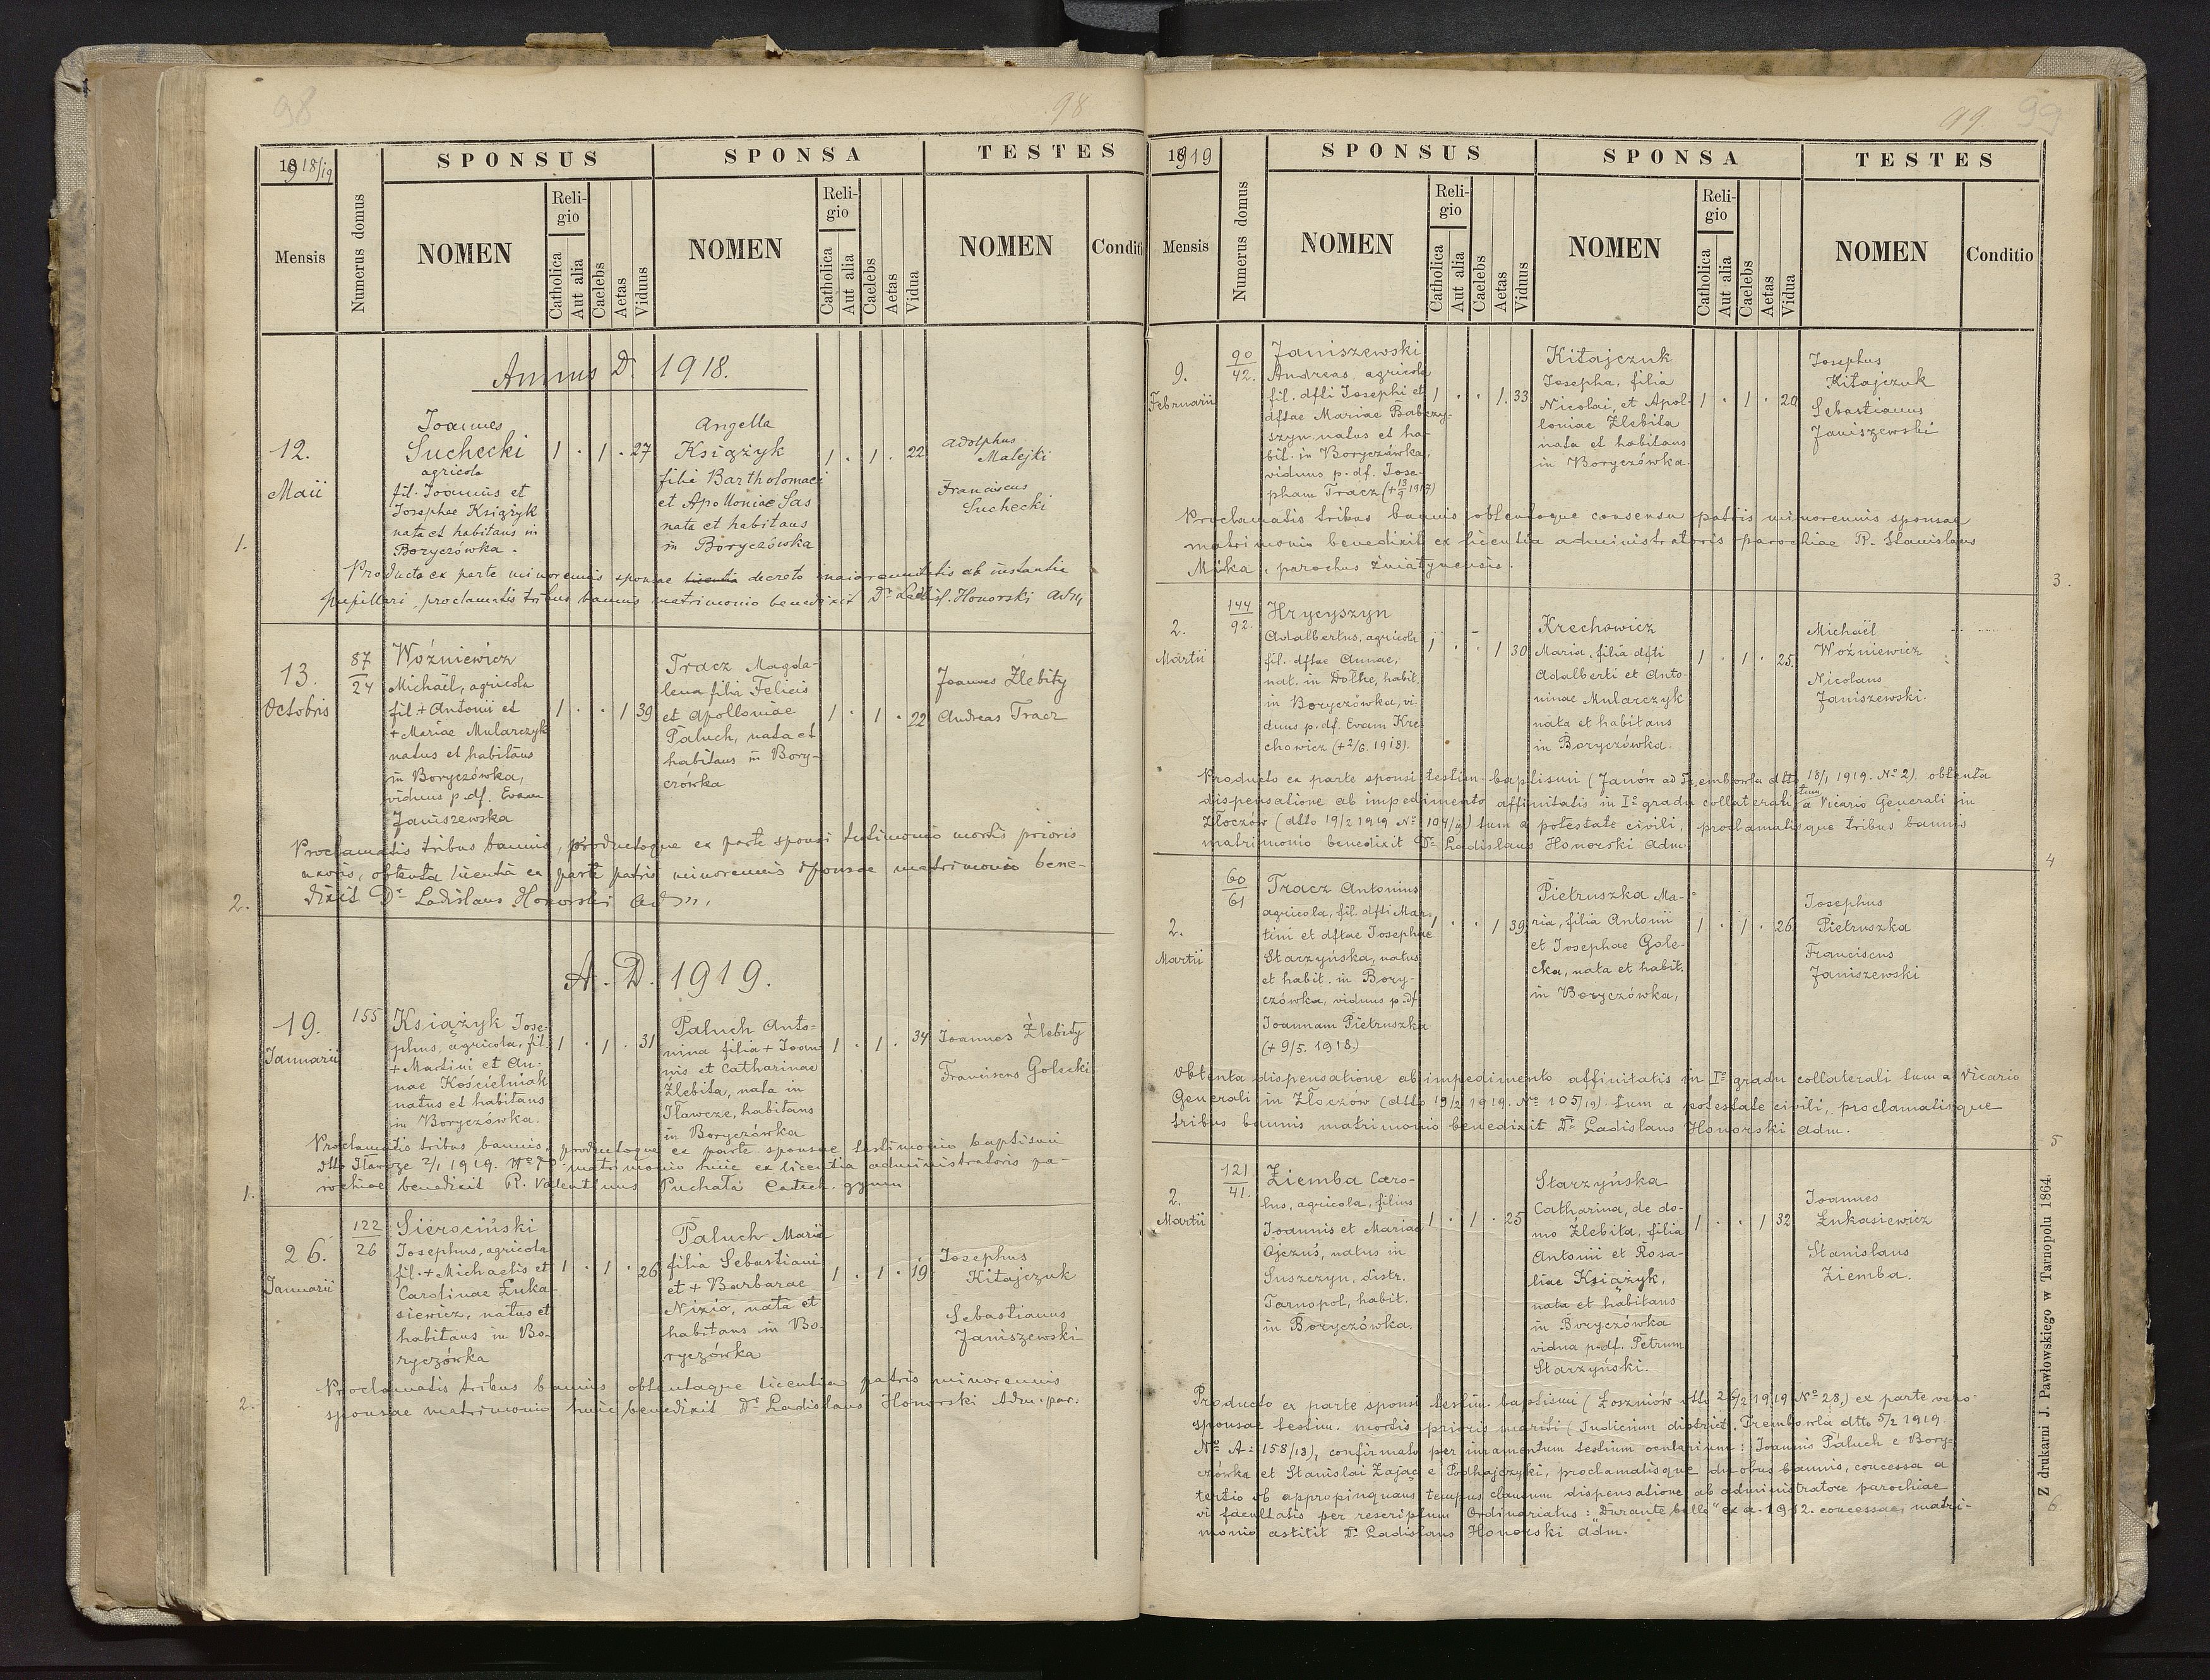 98
98
1918/19
SPONSUS
SPONSA
TESTES
Mensis
Numerus domus
NOMEN
Religio
Catholica
Aut alia
Caelebs
Aetas
Viduus
NOMEN
Religio
Catholica
Aut alia
Caelebs
Aetas
Vidua
NOMEN
Conditi
Annus D. 1918.
1.
12.
Maii
Joannes
Suchecki
agricola
fil. Joannis et
Josephae Książyk
nata et habitans in
Boryczówka.
1 . 1 . 27
Angella
Książyk
filia Bartholomaei
et Apolloniae Sas
nata et habitans
in Boryczówka
1 . 1 . 22
Adolphus
Matejki
Franciscus
Suchecki
Producto ex parte minorennis sponsae licentia decreto maiorennitatis ab instantia
pupillari, proclamatis tribus bannis matrimonio benedixit Dr Ladisl. Honorski Adm
2.
13.
Octobris
87
24
Woźniewicz
Michaël, agricola
fil. + Antonii et
+ Mariae Mularczyk
natus et habitans
in Boryczówka,
viduus p. df. Evam
Janiszewska
1 . . 1 39
Tracz Magda-
lena filia Felicis
et Apolloniae
Paluch, nata et
habitans in Bory-
czówka
1 . 1 . 22
Joannes Żlebity
Andreas Tracz
Proclamatis tribus bannis, productoque ex parte sponsi testimonio mortis prioris
uxoris, obtenta licentia ex parte patris minorennis sponsae matrimonio bene-
dixit Dr Ladislaus Honorski Adm.
A. D. 1919.
1.
19.
Januarii
155
Książyk Jose-
phus, agricola, fil.
+ Martini et An-
nae Kościelniak
natus et habitans
in Boryczówka.
1 . 1 . 31
Paluch Anto-
nina filia + Joan-
nis et Catharinae
Żlebita, nata in
Iławcze, habitans
in Boryczówka
1 . 1 . 34
Joannes Żlebity
Franciscus Golecki
Proclamatis tribus bannis, productoque ex parte sponsae testimonio baptismi
dtto Iławcze 2/1 1919. No 7 matrimonio huic ex licentia administratoris pa-
rochiae benedixit R. Valentinus Puchała Catech. gymn.
2.
26.
Januarii
122
26
Sierociński
Josephus, agricola
fil. + Michaelis et
Carolinae Łuka-
siewicz, natus et
habitans in Bo-
ryczówka
1 . 1 . 26
Paluch Maria
filia Sebastiani
et + Barbarae
Nizio, nata et
habitans in Bo-
ryczówka
1 . 1 . 19
Josephus
Kitajczuk
Sebastianus
Janiszewski
Proclamatis tribus bannis obtentaque licentia patris minorennis
sponsae matrimonio huic benedixit Dr Ladislaus Honorski Adm. par.
99.
99
1919
SPONSUS
SPONSA
TESTES
Mensis
Numerus domus
NOMEN
Religio
Catholica
Aut alia
Caelebs
Aetas
Viduus
NOMEN
Religio
Catholica
Aut alia
Caelebs
Aetas
Vidua
NOMEN
Conditio
9.
Februarii
90
42.
Janiszewski
Andreas, agricola
fil. dfti Josephi et
dftae Mariae Babczy-
szyn natus et ha-
bit. in Boryczówka,
viduus p. df. Jose-
pham Tracz (+ 13/9 1917)
1 . . 1. 33
Kitajczuk
Josepha, filia
Nicolai, et Apol-
loniae Żlebita
nata et habitans
in Boryczówka.
1 . 1 . 20
Josephus
Kitajczuk
Sebastianus
Janiszewski
Proclamatis tribus bannis obtentoque consensu patris minorennis sponsae
matrimonio benedixit ex licentia administratoris parochiae R. Stanislaus
Mika, parochus Źwiatynensis.
3.
2.
Martii
144
92.
Hrycyszyn
Adalbertus, agricola
fil. dftae Annae,
nat. in Dołhe, habit.
in Boryczówka, vi-
duus p. df. Evam Kre-
chowicz (+ 2/6. 1918).
1 . . 1 30
Krechowicz
Maria, filia dfti
Adalberti et Anto-
ninae Mularczyk
nata et habitans
in Boryczówka.
1 . 1 . 25.
Michaël
Woźniewicz
Nicolaus
Janiszewski.
Producto ex parte sponsi testim. baptismi (Janów ad Trembowla dtto 18/1 1919. No 2) obtenta
dispensatione ab impedimento affinitatis in Io gradu collaterali tum a Vicario Generali in
Złoczów (dtto 19/2 1919 No 104/19) tum a potestate civili, proclamatisque tribus bannis
matrimonio benedixit Dr Ladislaus Honorski Adm.
4
2.
Martii
60
61
Tracz Antonius
agricola, fil. dfti Mar-
tini et dftae Josephae
Starzyńska, natus
et habit. in Bory-
czówka, viduus p. df
Joannam Pietruszka
(+ 9/5. 1918.)
1 . . 1 39
Pietruszka Ma-
ria, filia Antonii
et Josephae Gole-
cka, nata et habit.
in Boryczówka,
1 . 1 . 26
Josephus
Pietruszka
Franciscus
Janiszewski
Obtenta dispensatione ab impedimento affinitatis in Io gradu collaterali tum a Vicario
Generali in Złoczów (dtto 19/2 1919. No 105/19) tum a potestate civili, proclamatisque
tribus bannis matrimonio benedixit Dr Ladislaus Honorski Adm.
5
2.
Martii
121
41.
Ziemba Caro-
lus, agricola, filius
Joannis et Mariae
Ojczuś, natus in
Suszczyn, distr.
Tarnopol, habit.
in Boryczówka.
1 . 1 . 25
Starzyńska
Catharina, de do-
mo Żlebita, filia
Antonii et Rosa-
liae Książyk,
nata et habitans
in Boryczówka
vidua p. df. Petrum
Starzyński.
1 . . 1 32
Joannes
Łukasiewicz
Stanislaus
Ziemba.
Producto ex parte sponsi testim. baptismi (Łoszniów dtto 26/2 1919 No 28,) ex parte vero
sponsae testim. mortis prioris mariti (Judicium district. Trembowla dtto 5/2 1919.
No A: 158/18), confirmato per iuramentum testium ocularium: Joannis Paluch e Bory-
czówka et Stanislai Zając e Podhajczyki, proclamatisque duobus bannis, concessa a
tertio ob appropinquans tempus clausum dispensatione ab administratore parochiae
vi facultatis per rescriptum Ordinariatus: "Durante bello" ex a. 1912. concessae, matri-
monio astitit Dr Ladislaus Honorski Adm.
6
Z drukarni J. Pawłowskiego w Tarnopolu 1864.